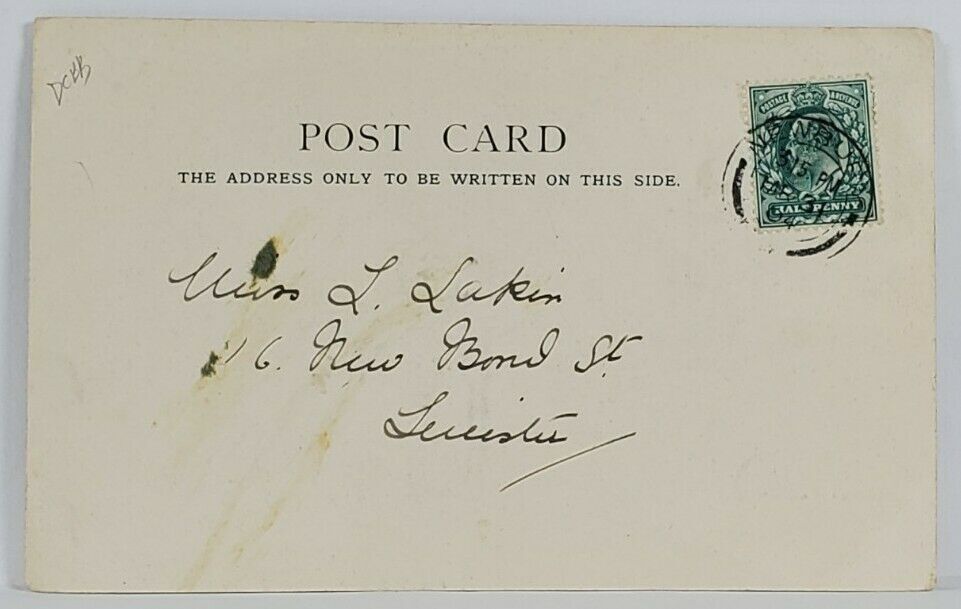 POST CARD
THE ADDRESS ONLY TO BE WRITTEN ON THIS SIDE.
POSTAGE & REVENUE
HALFPENNY
NEWBURY
3 15 PM
31
04
Miss L. Lakin
16. New Bond St
Leicester